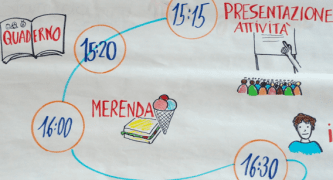 15:15
PRESENTAZIONE
ATTIVITÀ
QUADERNO
15:20
MERENDA
16:00
16:30